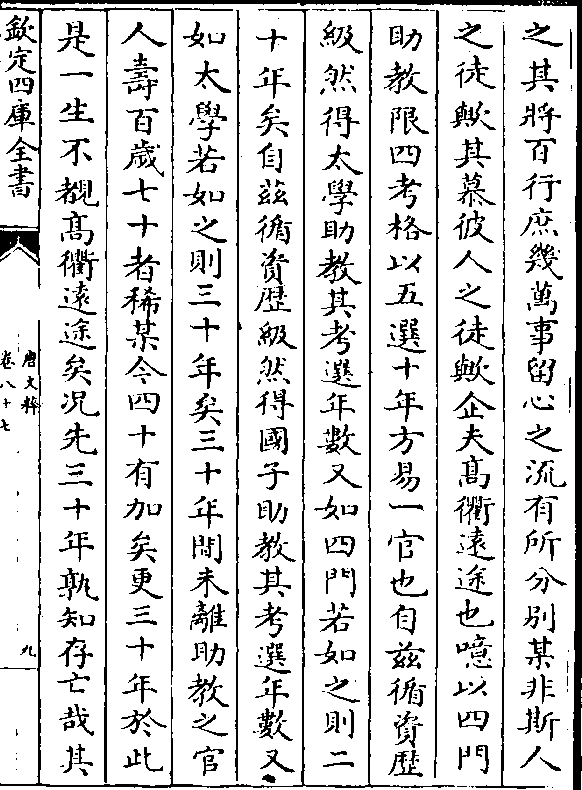 之其將百行庶幾萬事留心之流有所分别某非斯人
之徒歟其慕彼人之徒歟企夫髙衢逺途也噫以四門
助教限四考格以五選十年方易一官也自兹循資歴
級然得太學助教其考選年數又如四門若如之則二
十年矣自兹循資歴級然得國子助教其考選年數又
如太學若如之則三十年矣三十年間未離助教之官
人壽百歲七十者稀某今四十有加矣更三十年於此
是一生不覩髙衢逺途矣况先三十年孰知存亡哉其
欽定四庫全書
唐文粹
卷八十七
九